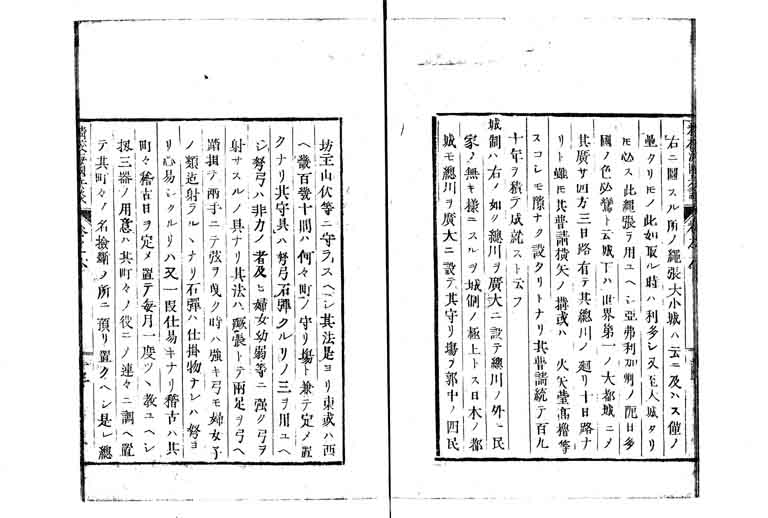 右ニ圖スル所ノ繩張大小城ハ云ニ及ハス僅ノ
壘タリモノ此如取ル時ハ利多シ又至大城タリ
モ必ス此繩張ヲ用ユヘシ亞弗利加洲ノ
國ノ色必驚ト云城下ハ世界第一ノ大都城ニメ
其廣サ四方三日路有テ其總川ノ廻リ十日路ナ
リト雖モ其普請橫矢ノ搆或ハ火天堂髙櫓等
スコレモ隙ナク設タリトナリ其普請統テ百九
十年ヲ積テ成就スト云フ
城制ハ右ノ如ク總川ヲ廣大ニ設テ總川ノ外ニ民
家ノ無キ樣ニスルヲ城制ノ極上トス日本ノ都
城モ總川ヲ廣大ニ設テ其守リ場ヲ郭中ノ四民
坊主山伏等ニ守ラスヘシ其法是ヨリ東或ハ西
ヘ幾百幾十間ハ何々町ノ守リ場ト兼テ定メ置
クナリ其守具ハ弩弓石彈クルリノ三ヲ用ユヘ
シ弩弓ハ非力ノ者及ヒ婦女幼弱等ニ強ク弓ヲ
射サスルノ具ナリ其法ハ蹶張トテ兩足ヲ弓ヘ
踏掛テ兩手ニテ弦ヲ曳ク時ハ強キ弓モ婦女子
ノ類迄射ラルヽナリ石彈ハ仕掛物ナレハ弩ヨ
リ心易シクルリハ又一段仕易キナリ稽古ハ其
町々稽古日ヲ定メ置テ每月一度ツヽ敎ユヘシ
扨三器ノ用意ハ其町々ノ役ニノ連々ニ調ヘ置
テ其町々ノ名撿斷ノ所ニ預リ置クヘシ是レ總